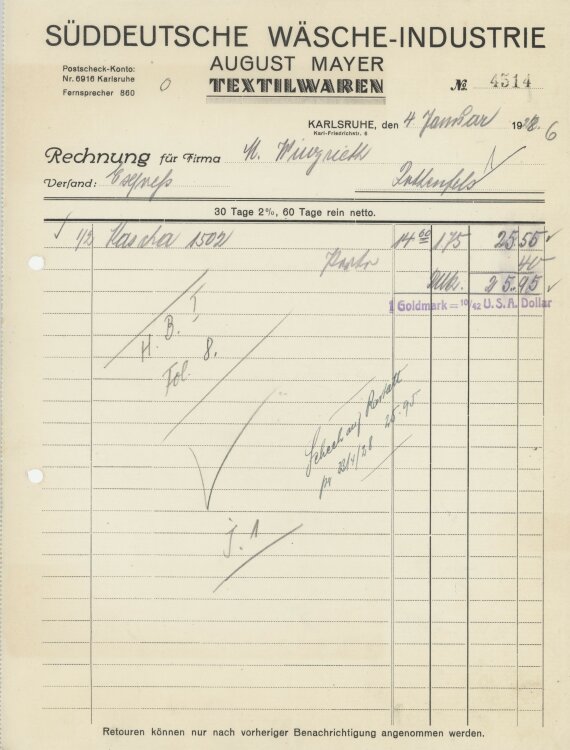 SÜDDEUTSCHE WÄSCHE-INDUSTRIE
AUGUST MAYER
TEXTILWAREN
Postscheck-Konto:
Nr. 6916 Karlsruhe
Fernsprecher 860
No 4314
KARLSRUHE, den 4 Januar 1928.
Karl-Friedrichstr. 6
6
Rechnung für Firma
Versand: Express
Rothenfels
30 Tage 2%, 60 Tage rein netto.
1/2 Kascha 1502 14 60 175 25.55
Porto 40
Mk. 25.95
1 Goldmark = 10/42 U.S.A. Dollar
H. B. I
Fol. 8.
Scheck auf Rastatt
pr 22/4/28 25.95
j. 1
Retouren können nur nach vorheriger Benachrichtigung angenommen werden.